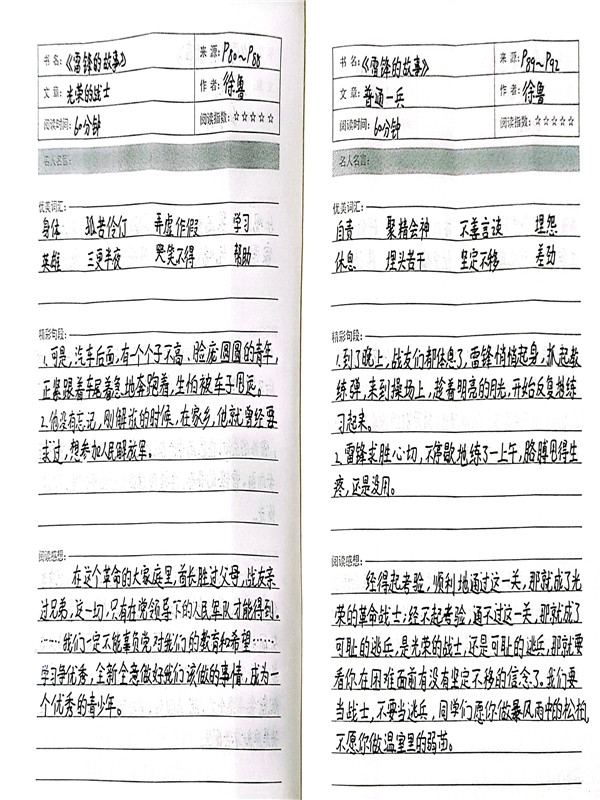 书名:《雷锋的故事》 来源:P80~P88
文章:光荣的战士 作者:徐鲁
阅读时间:60分钟 阅读指数:☆☆☆☆☆
名人名言:
优美词汇:
身体 孤苦伶仃 弄虚作假 学习
英雄 三更半夜 哭笑不得 帮助
精彩句段:
1.可是,汽车后面,有一个个子不高、脸庞圆圆的青年,
正紧跟着车尾着急地奔跑着,生怕被车子甩远。
2.他没有忘记,刚解放的时候,在家乡,他就曾经要
求过,想参加人民解放军。
阅读感想:
在这个革命的大家庭里,首长胜过父母,战友亲
过兄弟,这一切,只有在党领导下的人民军队才能得到.
……我们一定不能辜负党对我们的教育和希望……
学习争优秀,全新全意做好我们该做的事情,成为一
个优秀的青少年。
书名:《雷锋的故事》 来源:P89~P92
文章:普通一兵 作者:徐鲁
阅读时间:60分钟 阅读指数:☆☆☆☆☆
名人名言:
优美词汇:
自责 聚精会神 不善言谈 埋怨
休息 埋头苦干 坚定不移 差劲
精彩句段:
1.到了晚上,战友们都休息了,雷锋悄悄起身,抓起教
练弹,来到操场上,趁着明亮的月光,开始反复地练
习起来。
2.雷锋求胜心切,不停歇地练了一上午,胳膊甩得生
疼,还是没用。
阅读感想:
经得起考验,顺利地通过这一关,那就成了光
荣的革命战士;经不起考验,通不过这一关,那就成了
可耻的逃兵,是光荣的战士,还是可耻的逃兵,那就要
看你在困难面前有没有坚定不移的信念了。我们要
当战士,不要当逃兵,同学们愿你做暴风雨中的松柏,
不愿你做温室里的弱苗。